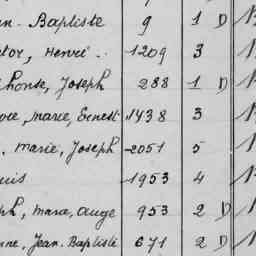 Baptiste 9 1 D
Henri 1209 3
Joseph 288 1 D
Marie, Ernest 1438 3
Marie, Joseph 2051 5
1953 4
Marie, Ange 953 2 D
Jean. Baptiste 671 2 D